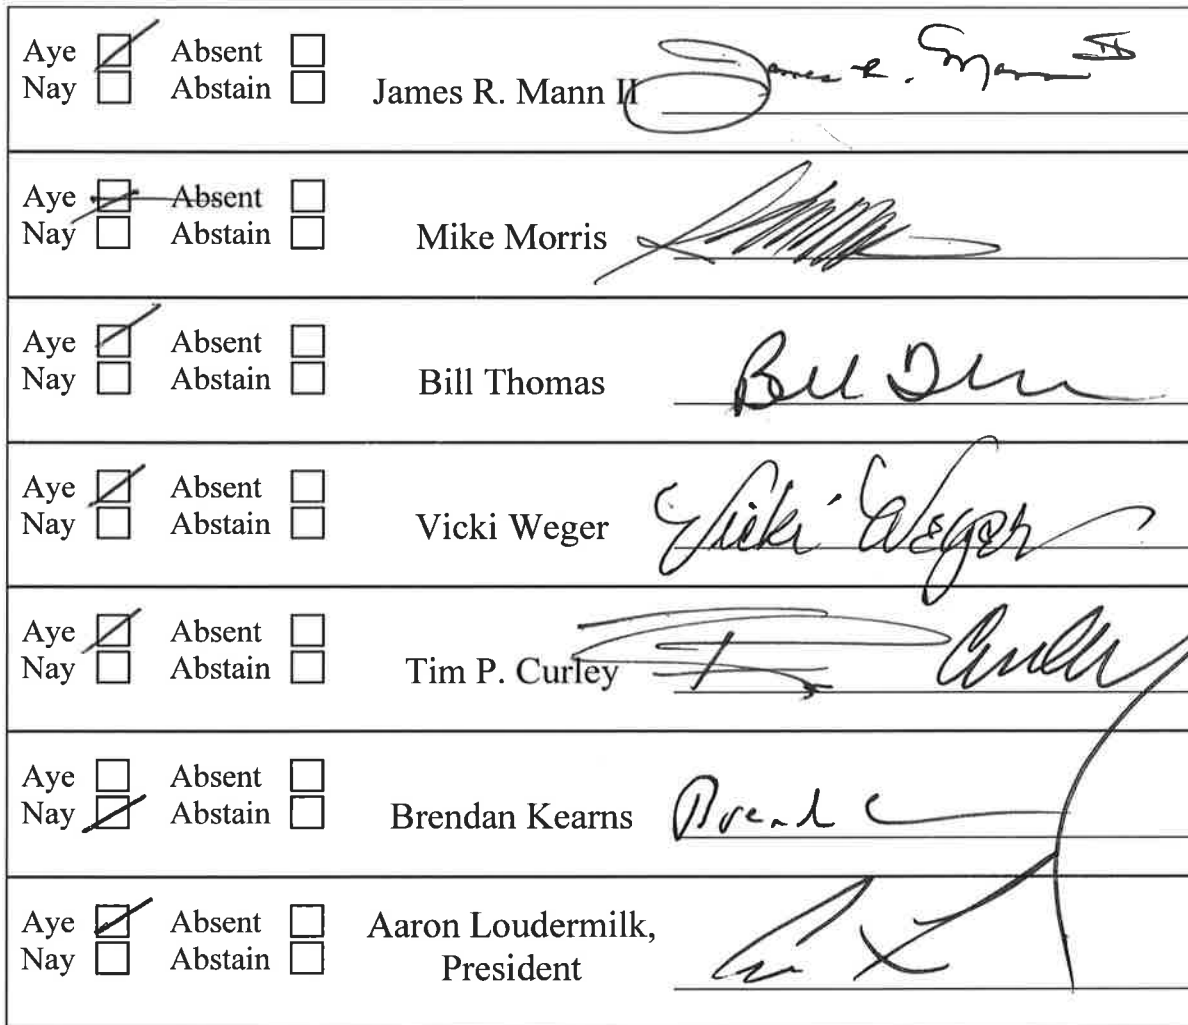 Aye Absent
Nay Abstain James R. Mann II James R. Mann II
Aye Absent
Nay Abstain Mike Morris
Aye Absent
Nay Abstain Bill Thomas Bill
Aye Absent
Nay Abstain Vicki Weger Vicki Weger
Aye Absent
Nay Abstain Tim P. Curley T Curley
Aye Absent
Nay Abstain Brendan Kearns
Aye Absent
Nay Abstain Aaron Loudermilk,
President